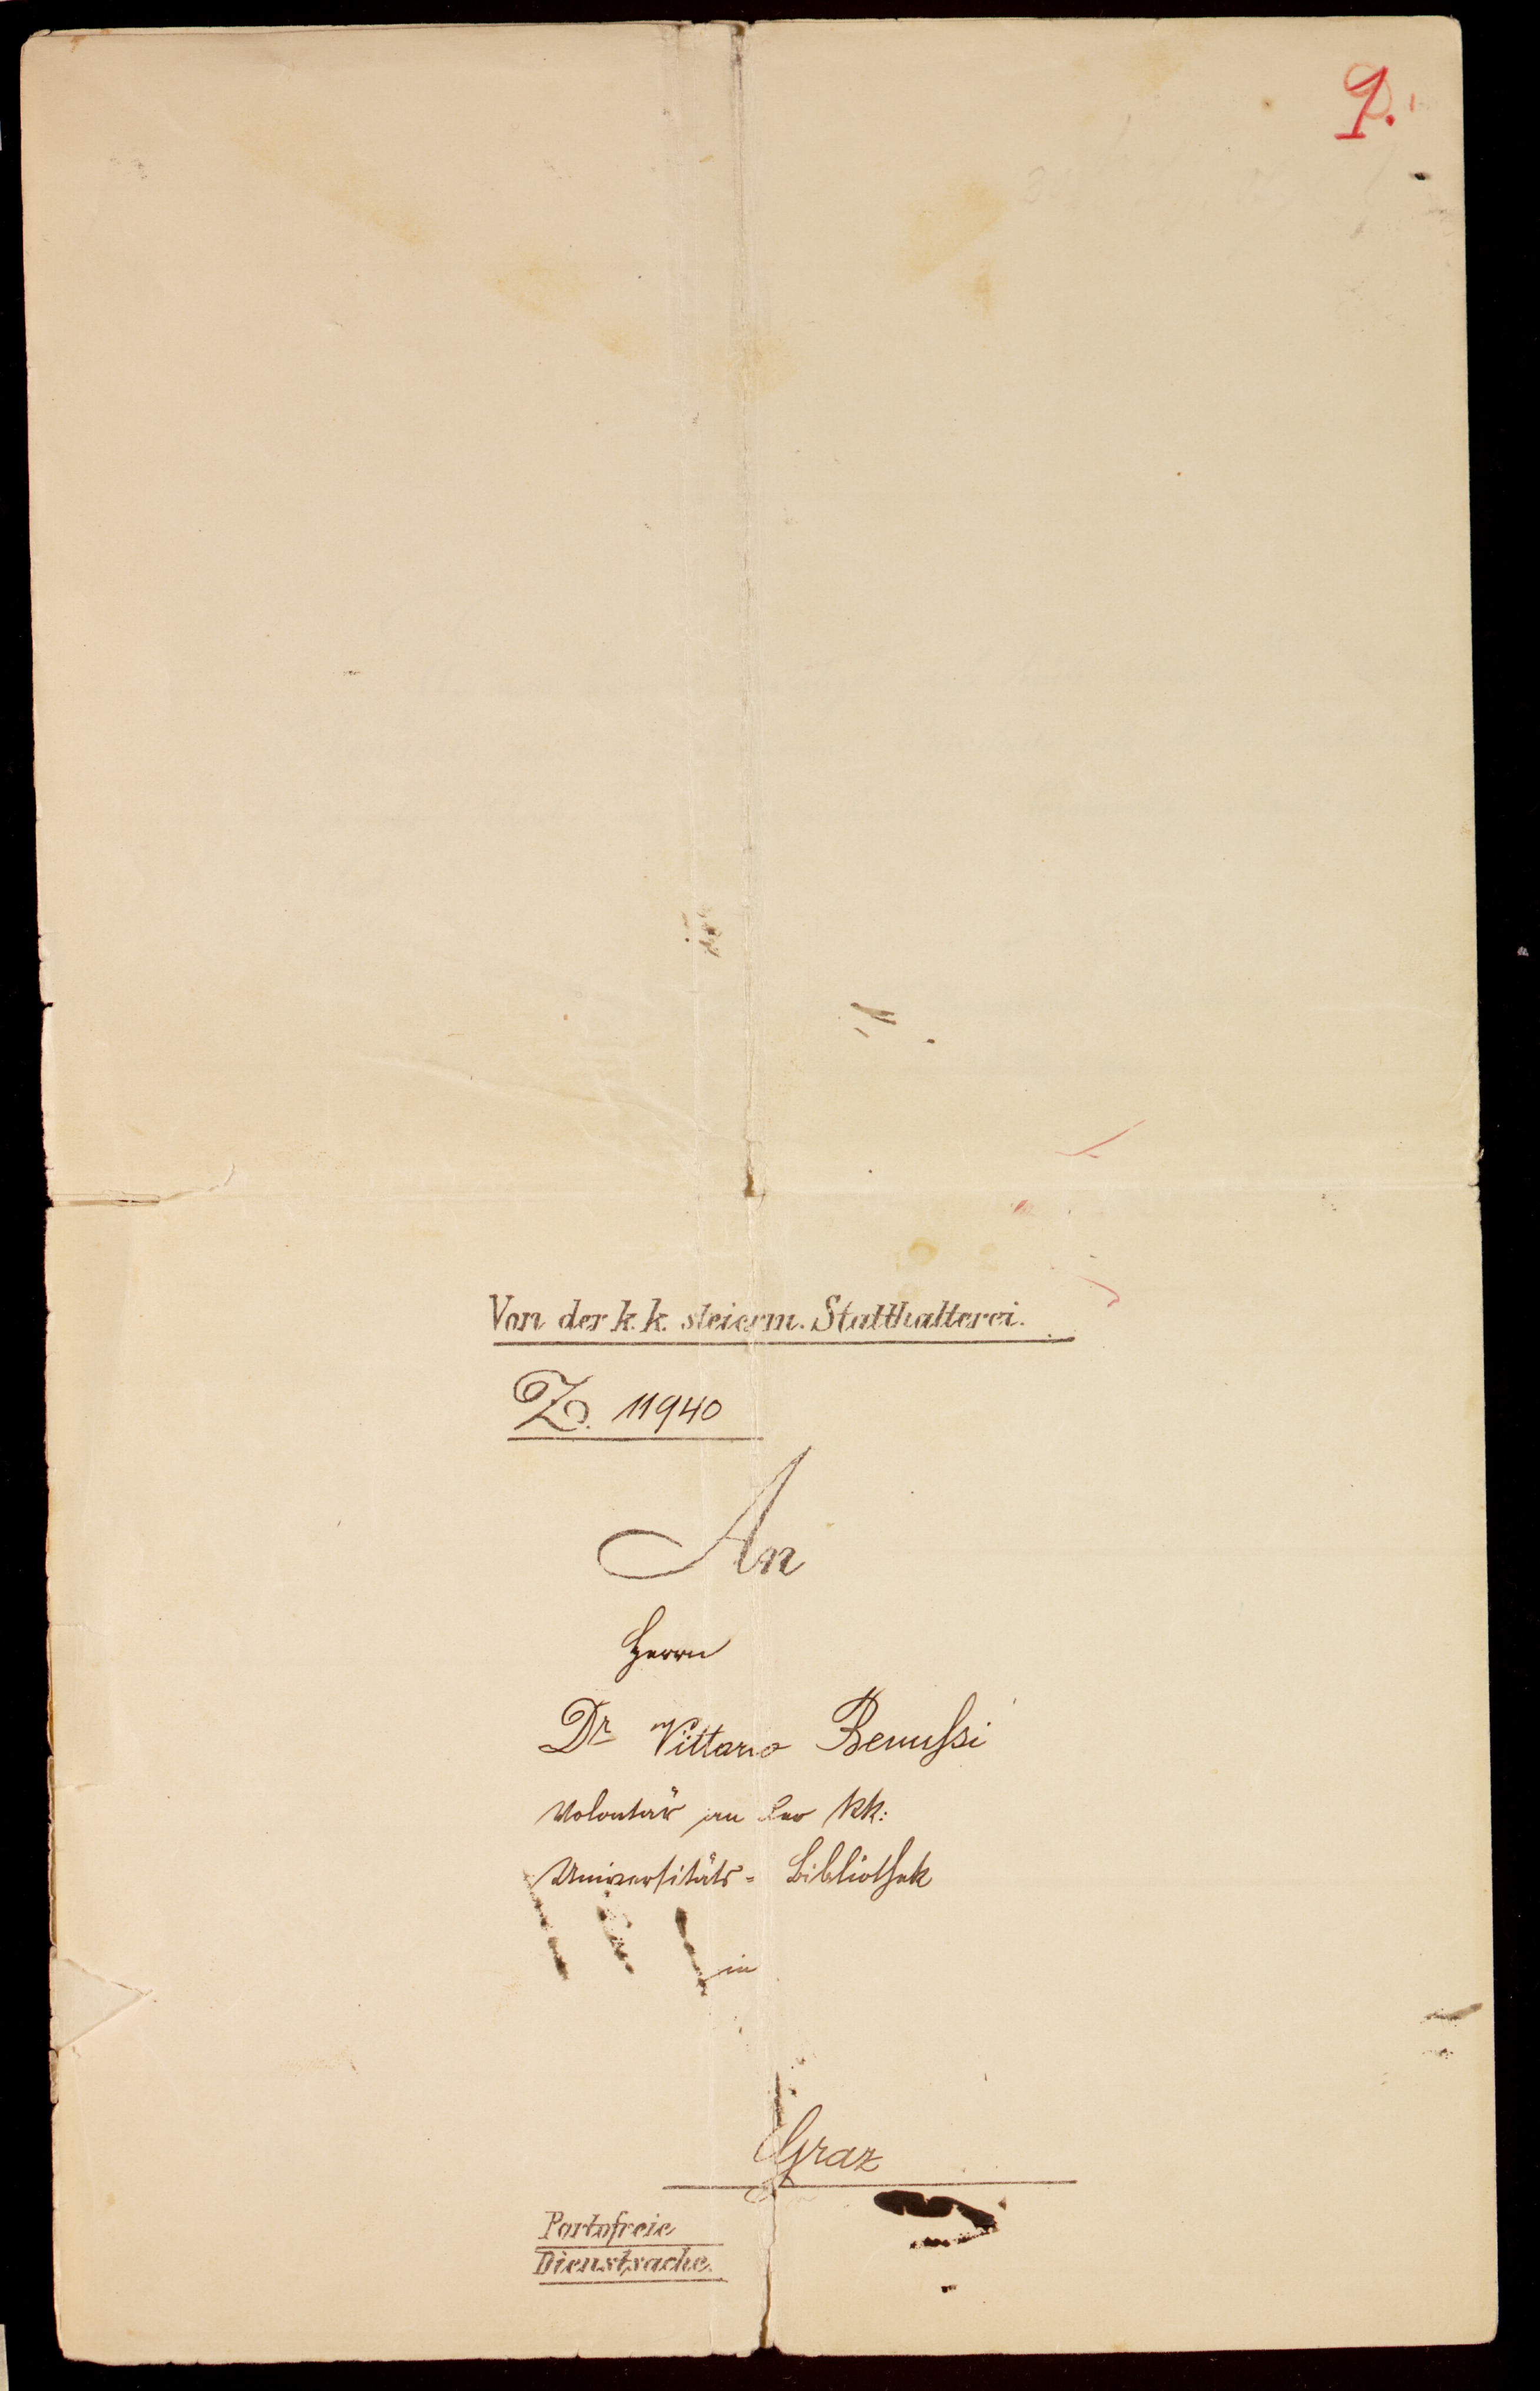 1.
Von der k. k. steierm. Statthalterei.
Z. 11940
An
Herrn
Dr Vittorio Benussi
Volontär an der kk:
Universitäts= Bibliothek
in
Graz
Portofreie
Dienstsache.